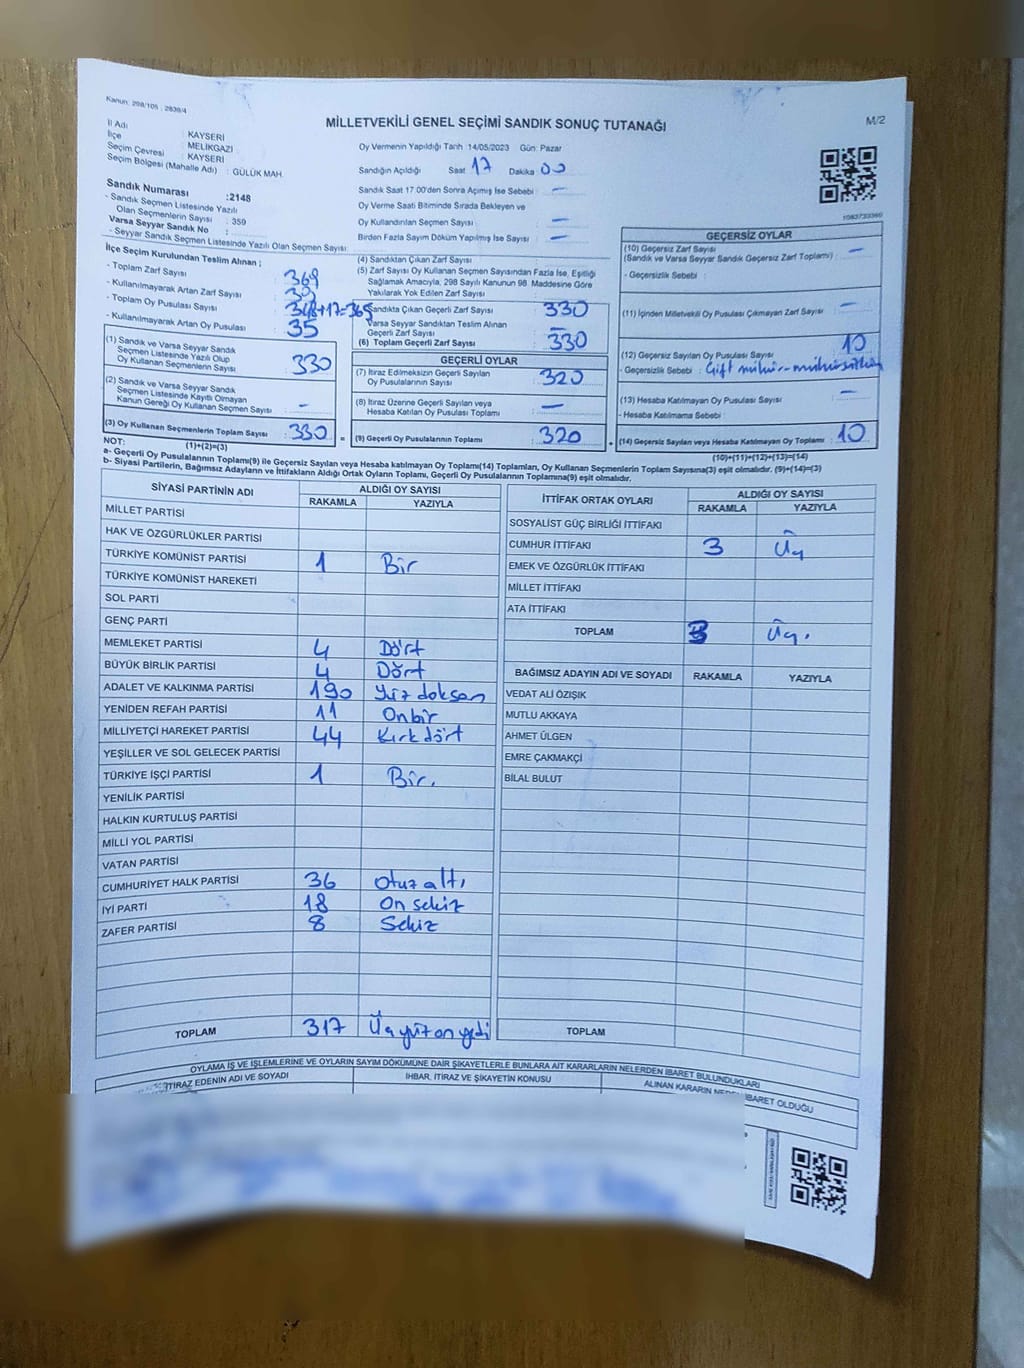 Kanun: 298/105 , 2839/4
MİLLETVEKİLİ GENEL SEÇİMİ SANDIK SONUÇ TUTANAĞI
M/2
İl Adı : KAYSERİ
İlçe : MELİKGAZİ
Seçim Çevresi : KAYSERİ
Seçim Bölgesi (Mahalle Adı) : GÜLÜK MAH.
Sandık Numarası :2148
- Sandık Seçmen Listesinde Yazılı
Olan Seçmenlerin Sayısı : 350
Varsa Seyyar Sandık No :
- Seyyar Sandık Seçmen Listesinde Yazılı Olan Seçmen Sayısı:
Oy Vermenin Yapıldığı Tarih 14/05/2023 Gün: Pazar
Sandığın Açıldığı Saat 17 Dakika 00
Sandık Saat 17.00'den Sonra Açımış İse Sebebi : —
Oy Verme Saati Bitiminde Sırada Bekleyen ve
Oy Kullandırılan Seçmen Sayısı : —
Birden Fazla Sayım Döküm Yapılmış İse Sayısı : —
İlçe Seçim Kurulundan Teslim Alınan ;
- Toplam Zarf Sayısı : 369
- Kullanılmayarak Artan Zarf Sayısı : 39
- Toplam Oy Pusulası Sayısı : 348+17=365
- Kullanılmayarak Artan Oy Pusulası : 35
(1) Sandık ve Varsa Seyyar Sandık
Seçmen Listesinde Yazılı Olup
Oy Kullanan Seçmenlerin Sayısı : 330
(2) Sandık ve Varsa Seyyar Sandık
Seçmen Listesinde Kayıtlı Olmayan
Kanun Gereği Oy Kullanan Seçmen Sayısı : —
(3) Oy Kullanan Seçmenlerin Toplam Sayısı : 330
(1)+(2)=(3)
(4) Sandıktan Çıkan Zarf Sayısı :
(5) Zarf Sayısı Oy Kullanan Seçmen Sayısından Fazla İse, Eşitliği
Sağlamak Amacıyla, 298 Sayılı Kanunun 98. Maddesine Göre
Yakılarak Yok Edilen Zarf Sayısı :
Sandıkta Çıkan Geçerli Zarf Sayısı : 330
Varsa Seyyar Sandıktan Teslim Alınan
Geçerli Zarf Sayısı : —
(6) Toplam Geçerli Zarf Sayısı : 330
GEÇERLİ OYLAR
(7) İtiraz Edilmeksizin Geçerli Sayılan
Oy Pusulalarının Sayısı : 320
(8) İtiraz Üzerine Geçerli Sayılan veya
Hesaba Katılan Oy Pusulası Toplamı : —
= (9) Geçerli Oy Pusulalarının Toplamı : 320
GEÇERSİZ OYLAR
(10) Geçersiz Zarf Sayısı
(Sandık ve Varsa Seyyar Sandık Geçersiz Zarf Toplamı) : —
- Geçersizlik Sebebi :
(11) İçinden Milletvekili Oy Pusulası Çıkmayan Zarf Sayısı : —
(12) Geçersiz Sayılan Oy Pusulası Sayısı : 10
- Geçersizlik Sebebi : Çift mühür-mühürsüz
(13) Hesaba Katılmayan Oy Pusulası Sayısı : —
- Hesaba Katılmama Sebebi :
+ (14) Geçersiz Sayılan veya Hesaba Katılmayan Oy Toplamı : 10
(10)+(11)+(12)+(13)=(14)
NOT:
a- Geçerli Oy Pusulalarının Toplamı(9) ile Geçersiz Sayılan veya Hesaba katılmayan Oy Toplamı(14) Toplamları, Oy Kullanan Seçmenlerin Toplam Sayısına(3) eşit olmalıdır. (9)+(14)=(3)
b- Siyasi Partilerin, Bağımsız Adayların ve İttifakların Aldığı Ortak Oyların Toplamı, Geçerli Oy Pusulalarının Toplamına(9) eşit olmalıdır.
SİYASİ PARTİNİN ADI ALDIĞI OY SAYISI
RAKAMLA YAZIYLA
MİLLET PARTİSİ
HAK VE ÖZGÜRLÜKLER PARTİSİ
TÜRKİYE KOMÜNİST PARTİSİ 1 Bir
TÜRKİYE KOMÜNİST HAREKETİ
SOL PARTİ
GENÇ PARTİ
MEMLEKET PARTİSİ 4 Dört
BÜYÜK BİRLİK PARTİSİ 4 Dört
ADALET VE KALKINMA PARTİSİ 190 Yüz doksan
YENİDEN REFAH PARTİSİ 11 Onbir
MİLLİYETÇİ HAREKET PARTİSİ 44 Kırk dört
YEŞİLLER VE SOL GELECEK PARTİSİ
TÜRKİYE İŞÇİ PARTİSİ 1 Bir.
YENİLİK PARTİSİ
HALKIN KURTULUŞ PARTİSİ
MİLLİ YOL PARTİSİ
VATAN PARTİSİ
CUMHURİYET HALK PARTİSİ 36 Otuz altı
İYİ PARTİ 18 On sekiz
ZAFER PARTİSİ 8 Sekiz
TOPLAM 317 Üçyüz on yedi
İTTİFAK ORTAK OYLARI ALDIĞI OY SAYISI
RAKAMLA YAZIYLA
SOSYALİST GÜÇ BİRLİĞİ İTTİFAKI
CUMHUR İTTİFAKI 3 Üç
EMEK VE ÖZGÜRLÜK İTTİFAKI
MİLLET İTTİFAKI
ATA İTTİFAKI
TOPLAM 3 Üç.
BAĞIMSIZ ADAYIN ADI VE SOYADI RAKAMLA YAZIYLA
VEDAT ALİ ÖZIŞIK
MUTLU AKKAYA
AHMET ÜLGEN
EMRE ÇAKMAKÇİ
BİLAL BULUT
TOPLAM
OYLAMA İŞ VE İŞLEMLERİNE VE OYLARIN SAYIM DÖKÜMÜNE DAİR ŞİKAYETLERLE BUNLARA AİT KARARLARIN NELERDEN İBARET BULUNDUKLARI
İTİRAZ EDENİN ADI VE SOYADI İHBAR, İTİRAZ VE ŞİKAYETİN KONUSU ALINAN KARARIN İBARET OLDUĞU